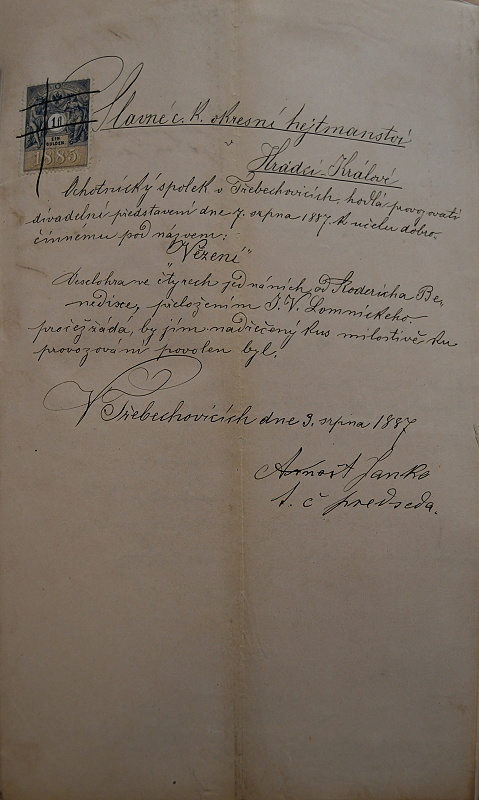 1 fl
EIN
GULDEN
1885
Slavné c. k. okresní hejtmanství
v
Hradci Králové
Ochotnický spolek v Třebechovicích, hodlá provozovati
divadelní představení dne 7. srpna 1887 k účelu dobro-
činnému pod názvem:
"Vězení"
Veselohra ve čtyrech jednáních, od Rodericha Be-
nedixe, přeložením J. V. Lomnického.
pročež žádá, by jim nadřečený kus milostivě ku
provozování povolen byl.
V Třebechovicích dne 3. srpna 1887
Arnošt Janko
t. č. předseda.